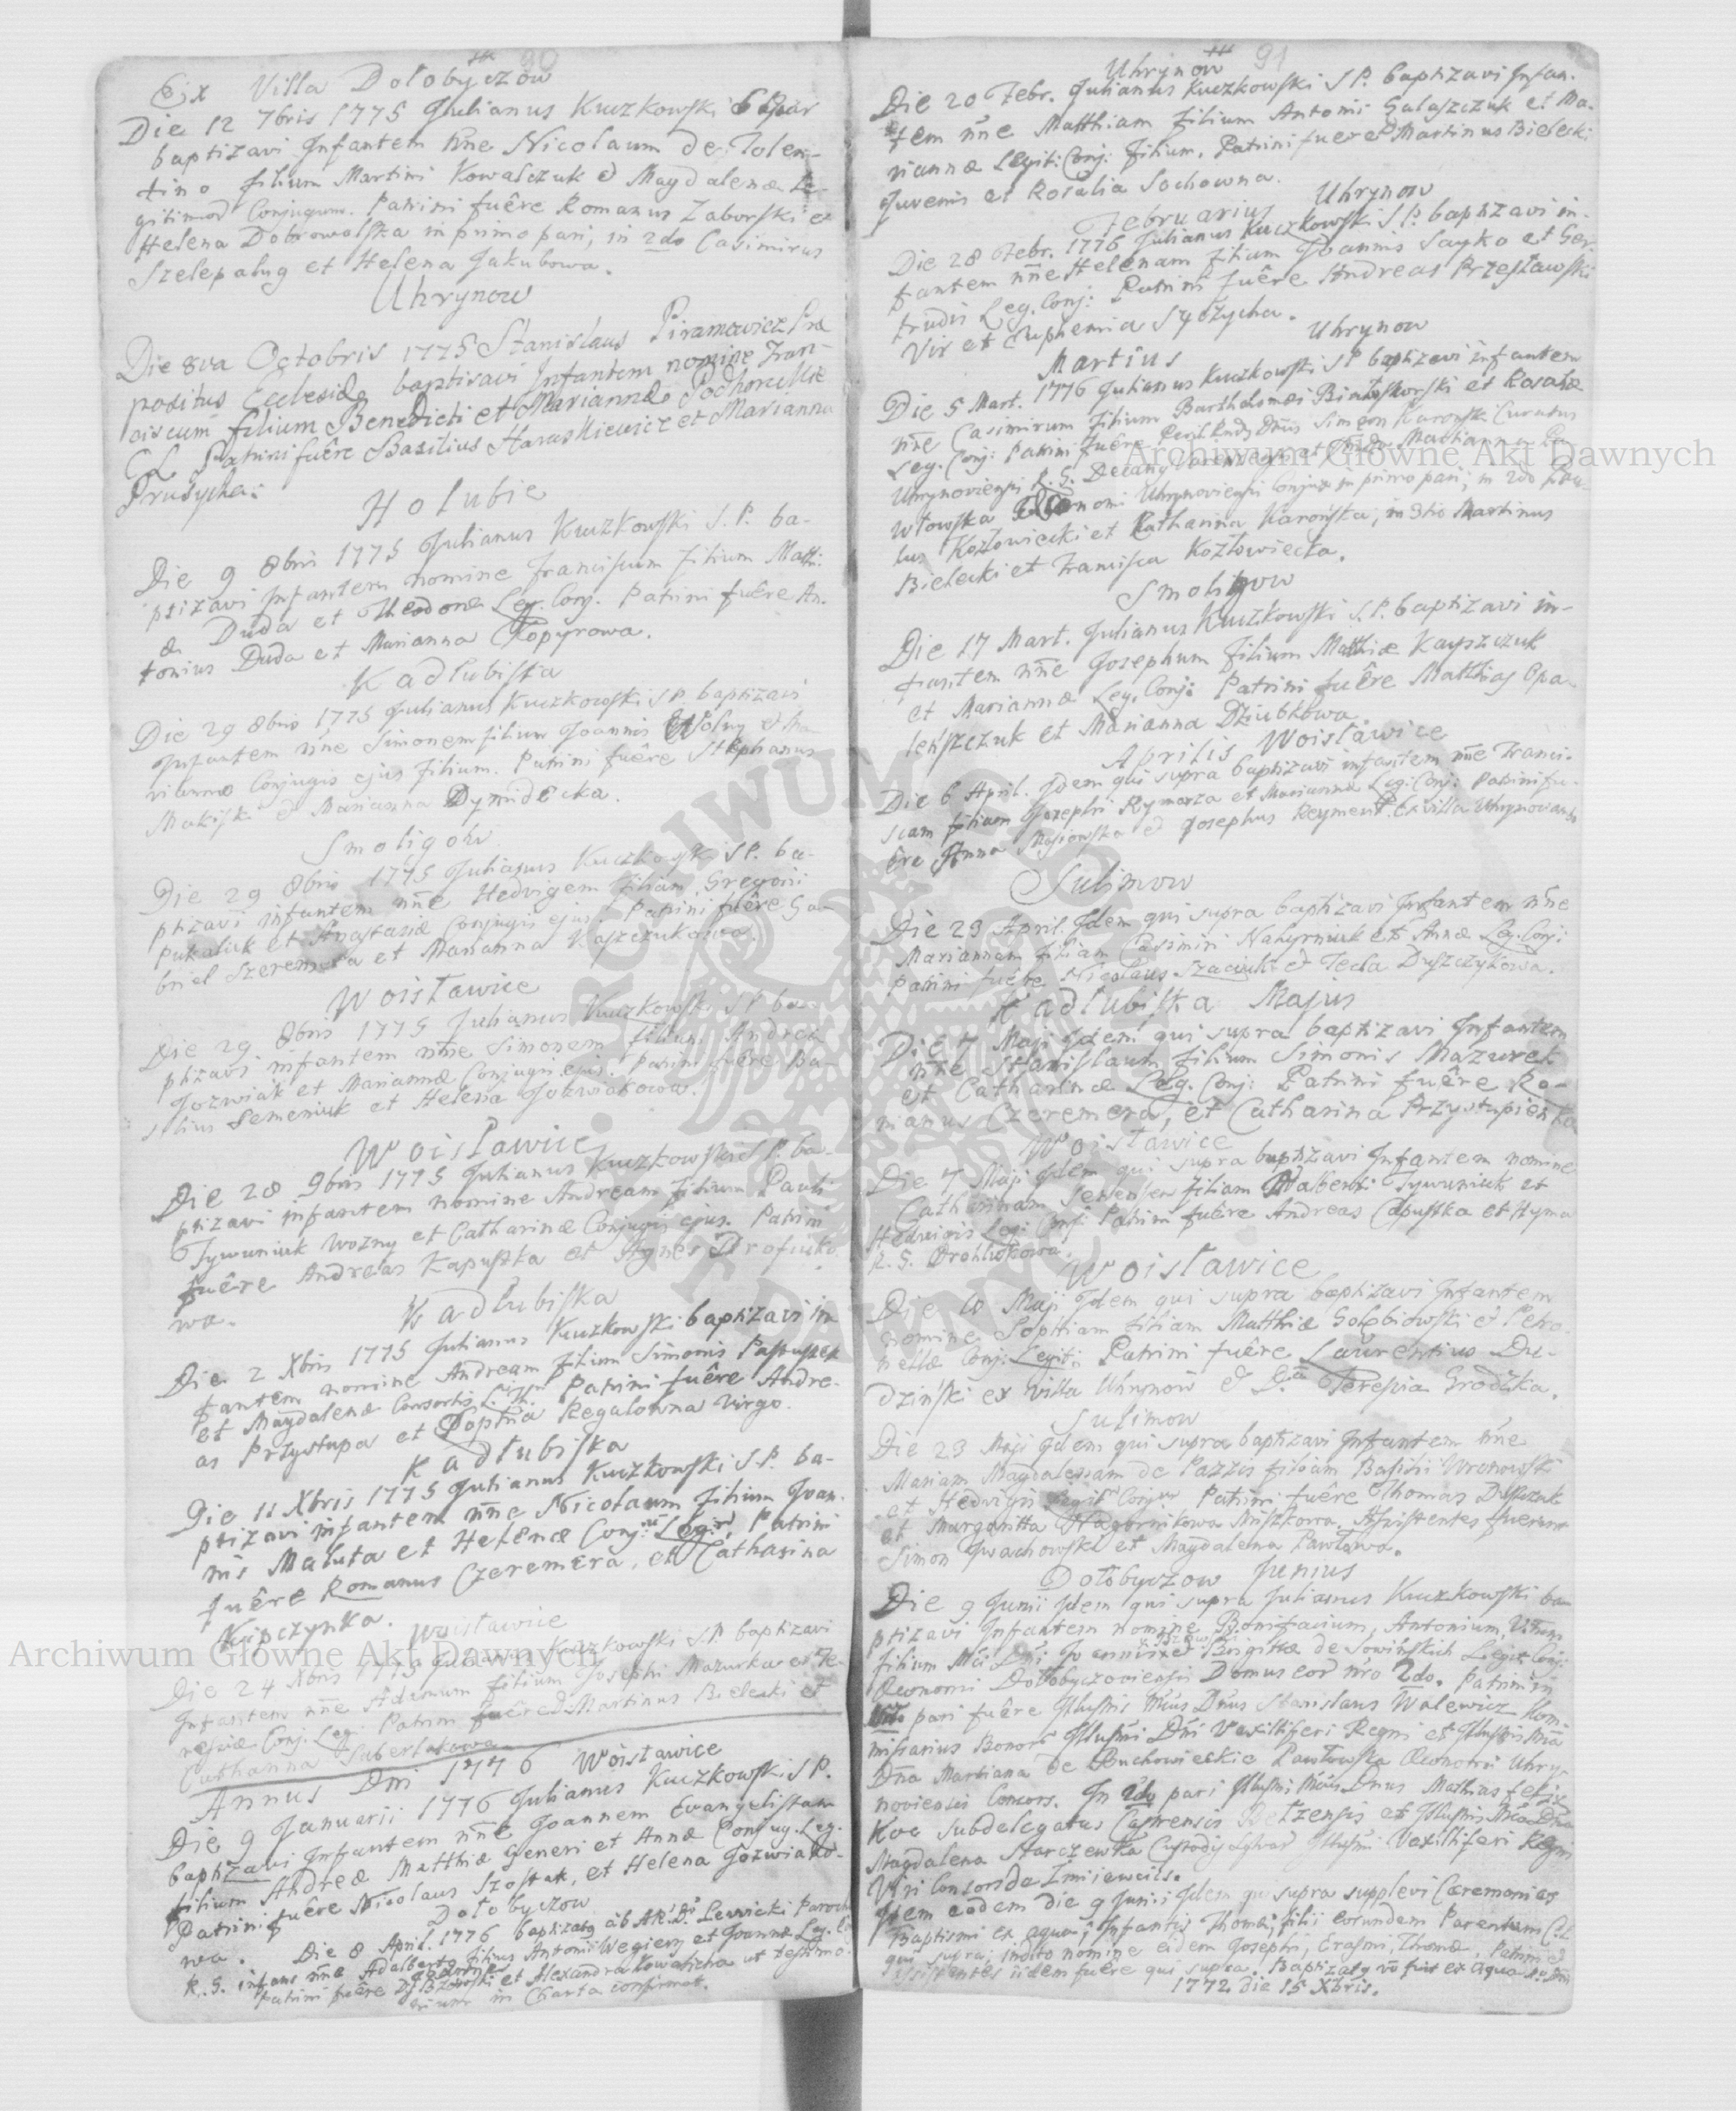 90
Ex Villa Dołobyczow
Die 12 7bris 1775 Julianus Kuczkowski
baptizavi Infantem nne Nicolaum de Tolen-
tino filium Martini Kowalczuk et Magdalenæ Le-
gitimor Conjugum. Patrini fuêre Romanus Zaborski et
Helena Dobrowolska in primo pari, in 2do Casimirus
Szelepalug et Helena Jakubowa.
Uhrynow
Die 8va Octobris 1775 Stanislaus Piramowicz Præ
positus Ecclesiæ baptisavi Infantem nomine Fran-
ciscum filium Benedicti et Mariannæ Podhoreckie
CL Patrini fuêre Basilius Haraskiewicz et Marianna
Prusycha.
Holubie
Die 9 8bris 1775 Julianus Kuczkowski S. P. ba-
ptizavi Infantem nomine Franciscum filium Matthi-
æ Duda et Theodoræ Leg. Conj. Patrini fuêre An-
tonius Duda et Marianna Kopyrowa.
Kadłubiska
Die 29 8bris 1775 Julianus Kuczkowski S P. baptizavi
Infantem nne Simonem filium Joannis et Ma
riannæ Conjugis ejus filium. Patrini fuêre Stephanus
et Marianna Dymidecka.
Smoligow
Die 29 8bris 1775 Julianus Kuczkowski S P. ba-
ptizavi infantem nne Hedvigem filiam Gregorii
Pukaluk et Anastasiæ Conjugis ejus. Patrini fuêre Ga-
briel Szeremeta et Marianna Kaszczukowa.
Woisławice
Die 29 8bris 1775 Julianus Kuczkowski S P. ba-
ptizavi infantem nne Simonem filium Andreæ
Jozwiak et Mariannæ Conjugis ejus. Patrini fuêre Ba
silius Semeniuk et Helena Jozwiakowa.
Woisławice
Die 28 9bris 1775 Julianus Kuczkowski S P. ba-
ptizavi infantem nomine Andream filium Pauli
Tywuniuk Wozny et Catharinæ Conjugis ejus. Patrini
fuêre Andreas Kapustka et Agnes Trofiuko
wa.
Kadłubiska
Die 2 Xbris 1775 Julianus Kuczkowski baptizavi in
fantem nomine Andream filium Simonis
et Magdalenæ Consortis L. Patrini fuêre Andre-
as Przystupa et Sophia Regulowna Virgo.
Kadłubiska
Die 11 Xbris 1775 Julianus Kuczkowski S. P. ba-
ptizavi infantem nne Nicolaum filium Joan-
nis Maluta et Helenæ Conj: Leg: Patrini
fuêre Romanus Czeremera, et Catharina
Kipczynka.
Woisławice
Die 24 Xbris 1775 Julianus Kuczkowski S P. baptizavi
Infantem nne Adamum filium Josephi Mazurka et Te
resiæ Conj. Leg. Patrini fuêre Martinus Bielecki et
Catharina
Annus Dni 1776 Woisławice
Die 9 Januarii 1776 Julianus Kuczkowski S P.
baptizavi Infantem nne Joannem Evangelistam
filium Andreæ Matthiæ Generi et Annæ Conjug. Leg.
Patrini fuêre Nicolaus Szostak, et Helena Jozwiako-
wa.
Dołobyczow
Die 8 April. 1776 baptizatg ab A.R.D. Lewicki Paroch
R. G. infans nne Adalbertg filius Antonii Wegiery et Joannæ Leg. Co
Patrini fuêre et Alexandra Kowalicha ut testimo-
nium in Charta confirmat.
91
Uhrynow
Die 20 Febr. Julianus Kuczkowski S P. baptizavi Infan-
tem nne Matthiam filium Antonii Galaszczuk et Ma-
riannæ Legit: Conj: filium. Patrini fuêre Martinus Bielecki
Juvenis et Rosalia Sochowna.
Februarius Uhrynow
Die 28 Febr. 1776 Julianus Kuczkowski S. P. baptizavi in-
fantem nne Helenam filium Joannis Sayko et Ger-
trudis Leg. Conj: Patrini fuêre Andreas Przesławski
Vir et Euphemia Syożycha.
Martius Uhrynow
Die 5 Mart. 1776 Julianus Kuczkowski S P baptizavi infantem
nne Casimirum filium Bartholomæi et Rosaliæ
Leg. Conj: Patrini fuêre Dnus Simeon Karonski Curatus
Uhrynoviensis R. G. Marianna Pa-
włowska Uhrynoviensis Conjux in primo pari, in 2do Pau-
lus Kozłowiecki et Catharina Karońska, in 3tio Martinus
Bielecki et Francisca Kozłowiecka.
Smoligow
Die 17 Mart. Julianus Kuczkowski S. P. baptizavi in-
fantem nne Josephum filium Matthiæ Kayszczuk
et Mariannæ Leg. Conj: Patrini fuêre Matthias Opa-
leńszczuk et Marianna Dziubkowa.
Aprilis Woisławice
Die 6 April. Idem qui supra baptizavi infantem nne Franci-
scam filiam Josephi Rymarza et Mariannæ Leg: Conj: Patrini fu-
êre Anna Majiewska et Josephus Reyment Ex Villa Uhrynowiants
Sulimow
Die 23 April. Idem qui supra baptizavi Infantem nne
Mariannam filiam Casimiri Nahyrniuk et Annæ Leg. Conj:
Patrini fuêre Nicolaus Szaciuk et Tecla Duszczykowa.
Kadłubiska Majus
Die 7 Maji Idem qui supra baptizavi Infantem
nne Stanislaum filium Simonis Mazurek
et Catharinæ Leg. Conj: Patrini fuêre Ro-
manus Czeremera, et Catharina Przystupienka
Woisławice
Die 7 Maji Idem qui supra baptizavi Infantem nomine
Catharinam Senensem filiam Adalberti Tywuniuk et
Hedwigis Leg: Conj: Patrini fuêre Andreas Capustka et Hyma
R. G. Drohluskowa.
Woisławice
Die 10 Maji Idem qui supra baptizavi Infantem
nomine Sophiam filiam Matthiæ Gołębiowski et Petro-
nellæ Conj: Legit: Patrini fuêre Laurentius Du-
dziński ex Villa Uhrynow et Teresia Grodzka.
Sulimow
Die 23 Maji Idem qui supra baptizavi Infantem nne
Mariam Magdalenam de Pazzis filiam Basilii Wronowski
et Hedvigis Legit Conjum Patrini fuêre Thomas
et Margaritta Hagornikowa Miszkowa, Assistentes fuerunt
Simon Gwachowski et Magdalena Pawłowa.
Dołobyczow Junius
Die 9 Junii Idem qui supra Julianus Kuczkowski ba
ptizavi Infantem nomine Bonifacium, Antonium, Vitum
filium Mci Dni Joannis et Brigittæ de Sowińskich Legit Conj:
Œconomi Dołobyczoviensis Domus eod nro 2do. Patrini in
1mo pari fuêre Illustris Mcus Dnus Stanislaus Walewicz Kom-
missarius Bonor Illustris Dni Vexilliferi Regni et Illustris Mca
Dna Martiana de Buchowieckie Pawłowska Œconomi Uhry-
noviensis Consors. In 2do pari Illustris Mcus Dnus Mathias Felix
Koc Subdelegatus Castrensis Bełzensis et Illustris Mca Dna
Magdalena Starczewska Illustris Vexilliferi Regni
Viri Consors de Zmijewcits.
Item eodem die 9 Junii Idem qui supra supplevi Cæremonias
Baptismi ex aqua, Infantis Thomæ, filii eorundem Parentum C.L.
qui supra; indito nomine eidem Josephi, Erasmi, Thomæ. Patrini et
Assistentes iidem fuêre qui supra. Baptizatg vo fuit ex aqua
1772 die 15 Xbris.
Archiwum Główne Akt Dawnych
Archiwum Główne Akt Dawnych
ARCHIWUM GŁÓWNE AKT DAWNYCH